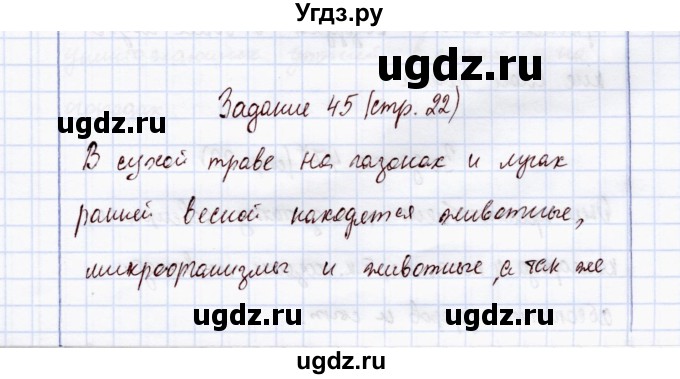 Угдз.ру
ugdz.ru
ugdz.ru
Задание 45 (стр. 22)
В сухой траве на газонах и лугах
ранней весной находятся животные,
микроорганизмы и животные, а так же
ugdz.ru
ugdz.ru
ugdz.ru